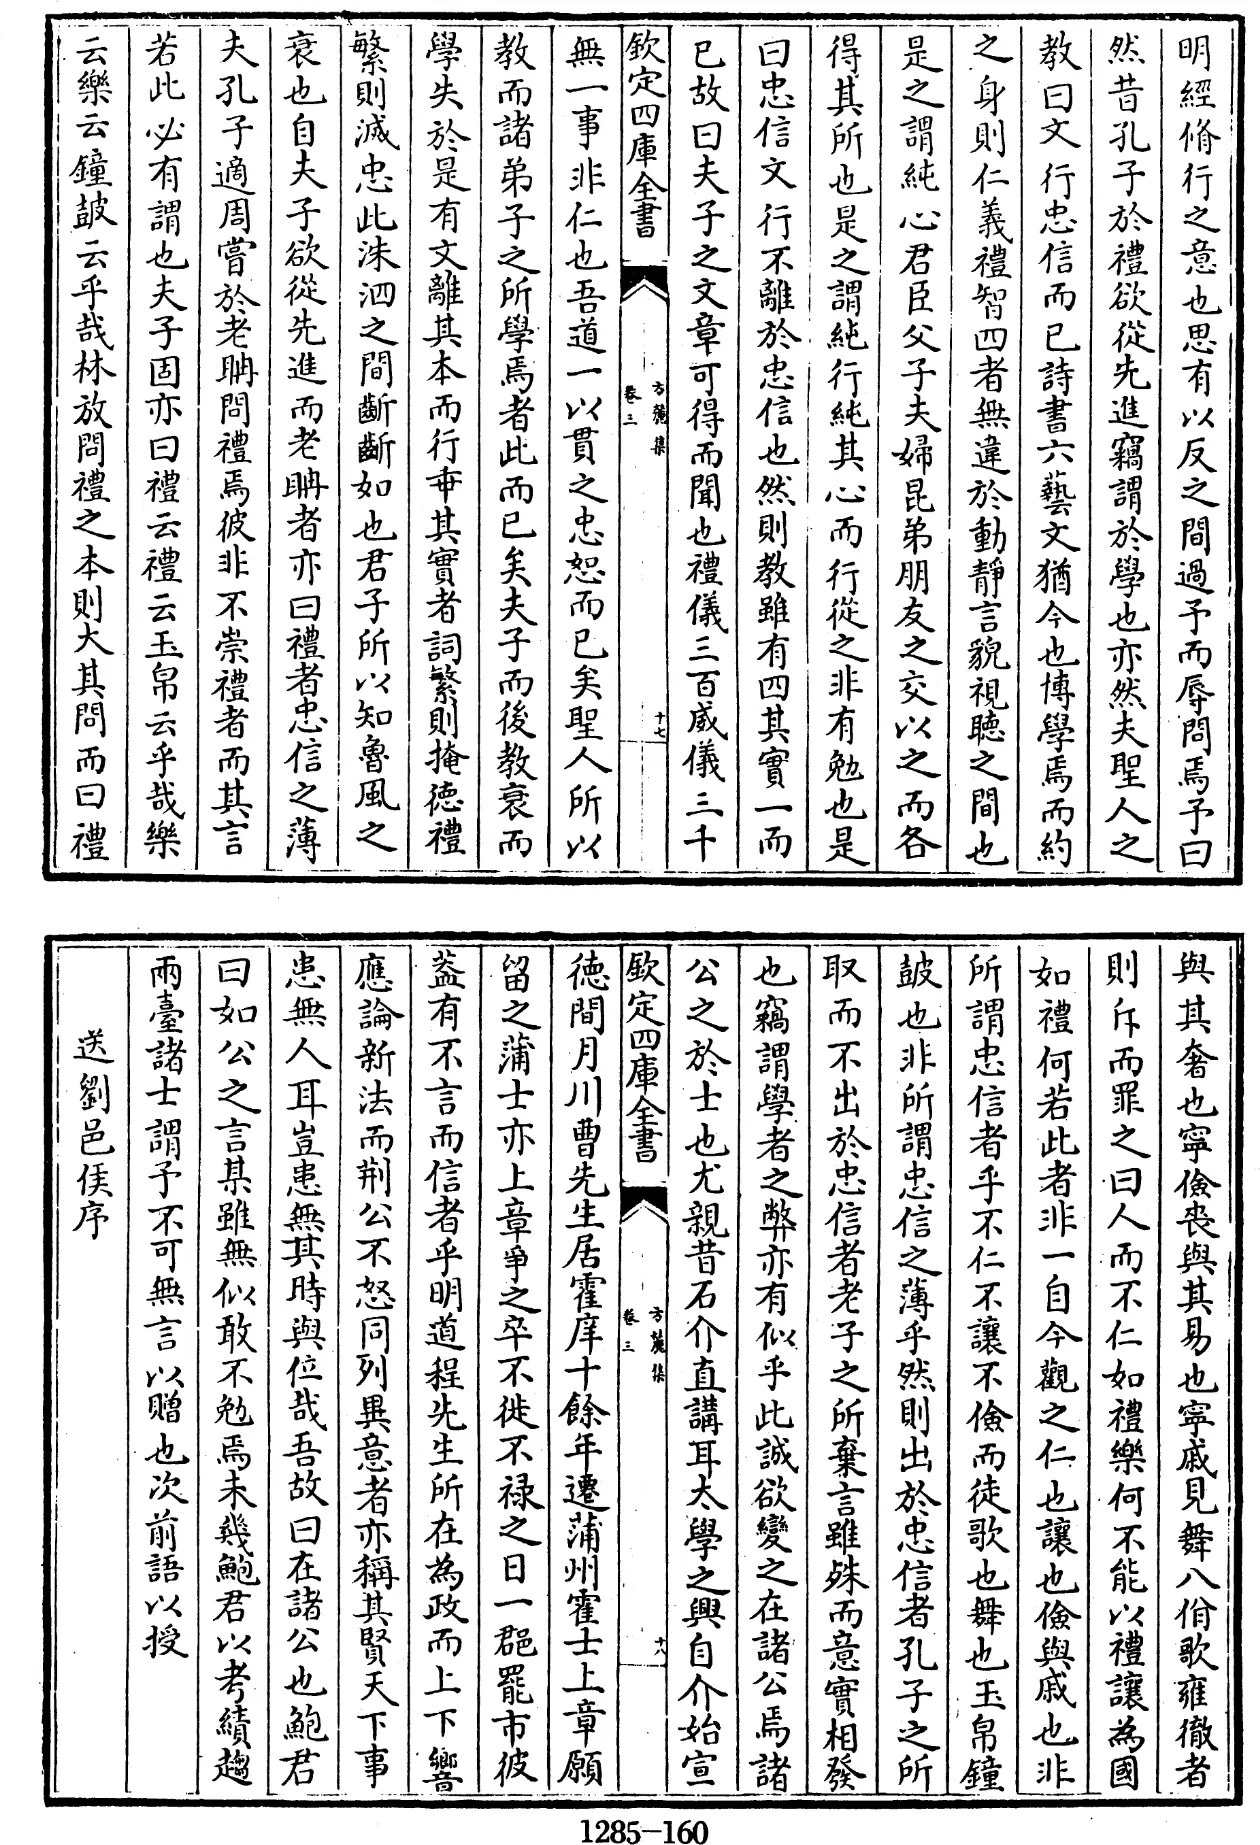 明經脩行之意也思有以反之間過予而辱問焉予曰
然昔孔子於禮欲從先進竊謂於學也亦然夫聖人之
教曰文行忠信而已詩書六藝文猶今也博學焉而約
之身則仁義禮智四者無違於動靜言貌視聽之間也
是之謂純心君臣父子夫婦昆弟朋友之交以之而各
得其所也是之謂純行純其心而行從之非有勉也是
曰忠信文行不離於忠信也然則教雖有四其實一而
已故曰夫子之文章可得而聞也禮儀三百威儀三千
欽定四庫全書
方麓集
卷三
十七
無一事非仁也吾道一以貫之忠恕而已矣聖人所以
教而諸弟子之所學焉者此而已矣夫子而後教衰而
學失於是有文離其本而行弗其實者詞繁則掩德禮
繁則滅忠此洙泗之間齗齗如也君子所以知魯風之
衰也自夫子欲從先進而老聃者亦曰禮者忠信之薄
夫孔子適周嘗於老聃問禮焉彼非不崇禮者而其言
若此必有謂也夫子固亦曰禮云禮云玉帛云乎哉樂
云樂云鐘鼓云乎哉林放問禮之本則大其問而曰禮
與其奢也寧儉喪與其易也寧戚見舞八佾歌雍徹者
則斥而罪之曰人而不仁如禮樂何不能以禮讓為國
如禮何若此者非一自今觀之仁也讓也儉與戚也非
所謂忠信者乎不仁不讓不儉而徒歌也舞也玉帛鐘
鼓也非所謂忠信之薄乎然則出於忠信者孔子之所
取而不出於忠信者老子之所棄言雖殊而意實相發
也竊謂學者之弊亦有似乎此誠欲變之在諸公焉諸
公之於士也尤親昔石介直講耳太學之興自介始宣
欽定四庫全書
方麓集
卷三
十八
德間月川曹先生居霍庠十餘年遷蒲州霍士上章願
留之蒲士亦上章爭之卒不徙不祿之日一郡罷市彼
葢有不言而信者乎明道程先生所在為政而上下響
應論新法而荆公不怒同列異意者亦稱其賢天下事
患無人耳豈患無其時與位哉吾故曰在諸公也鮑君
曰如公之言某雖無似敢不勉焉未幾鮑君以考績趨
兩臺諸士謂予不可無言以贈也次前語以授
送劉邑侯序
1285—160